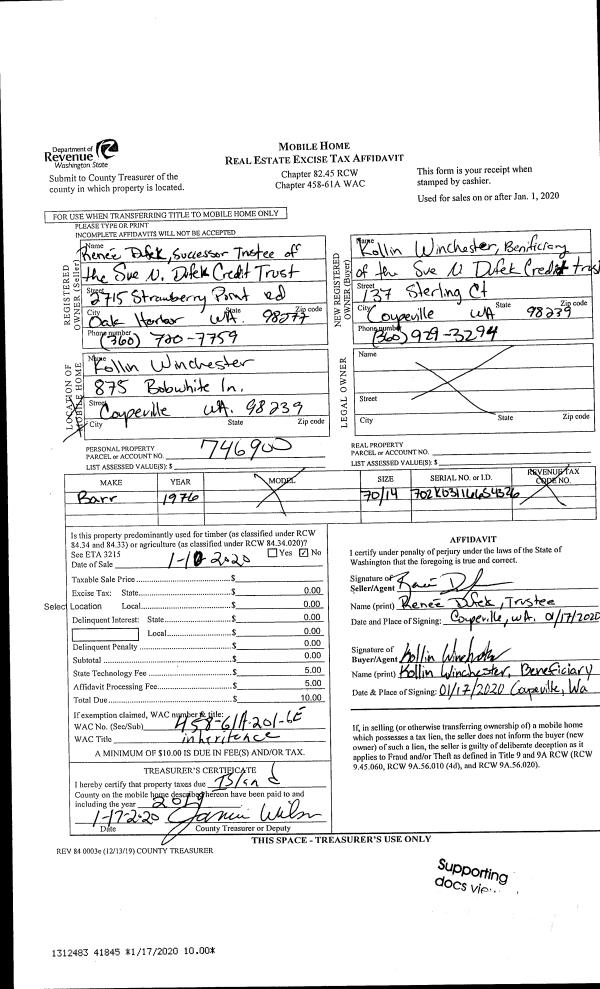 Department of
Revenue
Washington State
Submit to County Treasurer of the
county in which property is located.
MOBILE HOME
REAL ESTATE EXCISE TAX AFFIDAVIT
Chapter 82.45 RCW
Chapter 458-61A WAC
This form is your receipt when
stamped by cashier.
Used for sales on or after Jan. 1, 2020
FOR USE WHEN TRANSFERRING TITLE TO MOBILE HOME ONLY
PLEASE TYPE OR PRINT
INCOMPLETE AFFIDAVITS WILL NOT BE ACCEPTED
REGISTERED
OWNER (Seller)
Name
Renée Dufek, Successor Trustee of
the Sue N. Dufek Credit Trust
Street
2715 Strawberry Point rd
City State Zip code
Oak Harbor WA. 98277
Phone number
(360) 720-7759
NEW REGISTERED
OWNER (Buyer)
Name
Kollin Winchester, Benificiary
of the Sue N Dufek Credit trust
Street
137 Sterling Ct
City State Zip code
Coupeville WA 98239
Phone number
(360) 929-3294
LOCATION OF
MOBILE HOME
Name
Kollin Winchester
875 Bobwhite ln.
Street
Coupeville WA. 98239
City State Zip code
LEGAL OWNER
Name
Street
City State Zip code
PERSONAL PROPERTY
PARCEL or ACCOUNT NO. 746900
LIST ASSESSED VALUE(S): $
REAL PROPERTY
PARCEL or ACCOUNT NO.
LIST ASSESSED VALUE(S): $
MAKE YEAR MODEL SIZE SERIAL NO. or I.D. REVENUE TAX
CODE NO.
Barr 1976 70/14
Is this property predominantly used for timber (as classified under RCW
84.34 and 84.33) or agriculture (as classified under RCW 84.34.020)?
See ETA 3215 Yes No
Date of Sale 1-10-2020
Taxable Sale Price $
Excise Tax: State $ 0.00
Select Location Local $ 0.00
Delinquent Interest: State $ 0.00
Local $ 0.00
Delinquent Penalty $ 0.00
Subtotal $ 0.00
State Technology Fee $ 5.00
Affidavit Processing Fee $ 5.00
Total Due $ 10.00
If exemption claimed, WAC number & title:
WAC No. (Sec/Sub) 458-61A-201-6E
WAC Title inheritence
A MINIMUM OF $10.00 IS DUE IN FEE(S) AND/OR TAX.
TREASURER'S CERTIFICATE
I hereby certify that property taxes due Island
County on the mobile home described hereon have been paid to and
including the year 2019
1-17-2-20
Date County Treasurer or Deputy
AFFIDAVIT
I certify under penalty of perjury under the laws of the State of
Washington that the foregoing is true and correct.
Signature of
Seller/Agent
Name (print) Renée Dufek, Trustee
Date and Place of Signing: Coupeville, WA. 01/17/2020
Signature of
Buyer/Agent Kollin Winchester
Name (print) Kollin Winchester, Beneficiary
Date & Place of Signing: 01/17/2020 Coupeville, Wa
If, in selling (or otherwise transferring ownership of) a mobile home
which possesses a tax lien, the seller does not inform the buyer (new
owner) of such a lien, the seller is guilty of deliberate deception as it
applies to Fraud and/or Theft as defined in Title 9 and 9A RCW (RCW
9.45.060, RCW 9A.56.010 (4d), and RCW 9A.56.020).
THIS SPACE - TREASURER'S USE ONLY
REV 84 0003e (12/13/19) COUNTY TREASURER
Supporting
docs
1312483 41845 *1/17/2020 10.00*